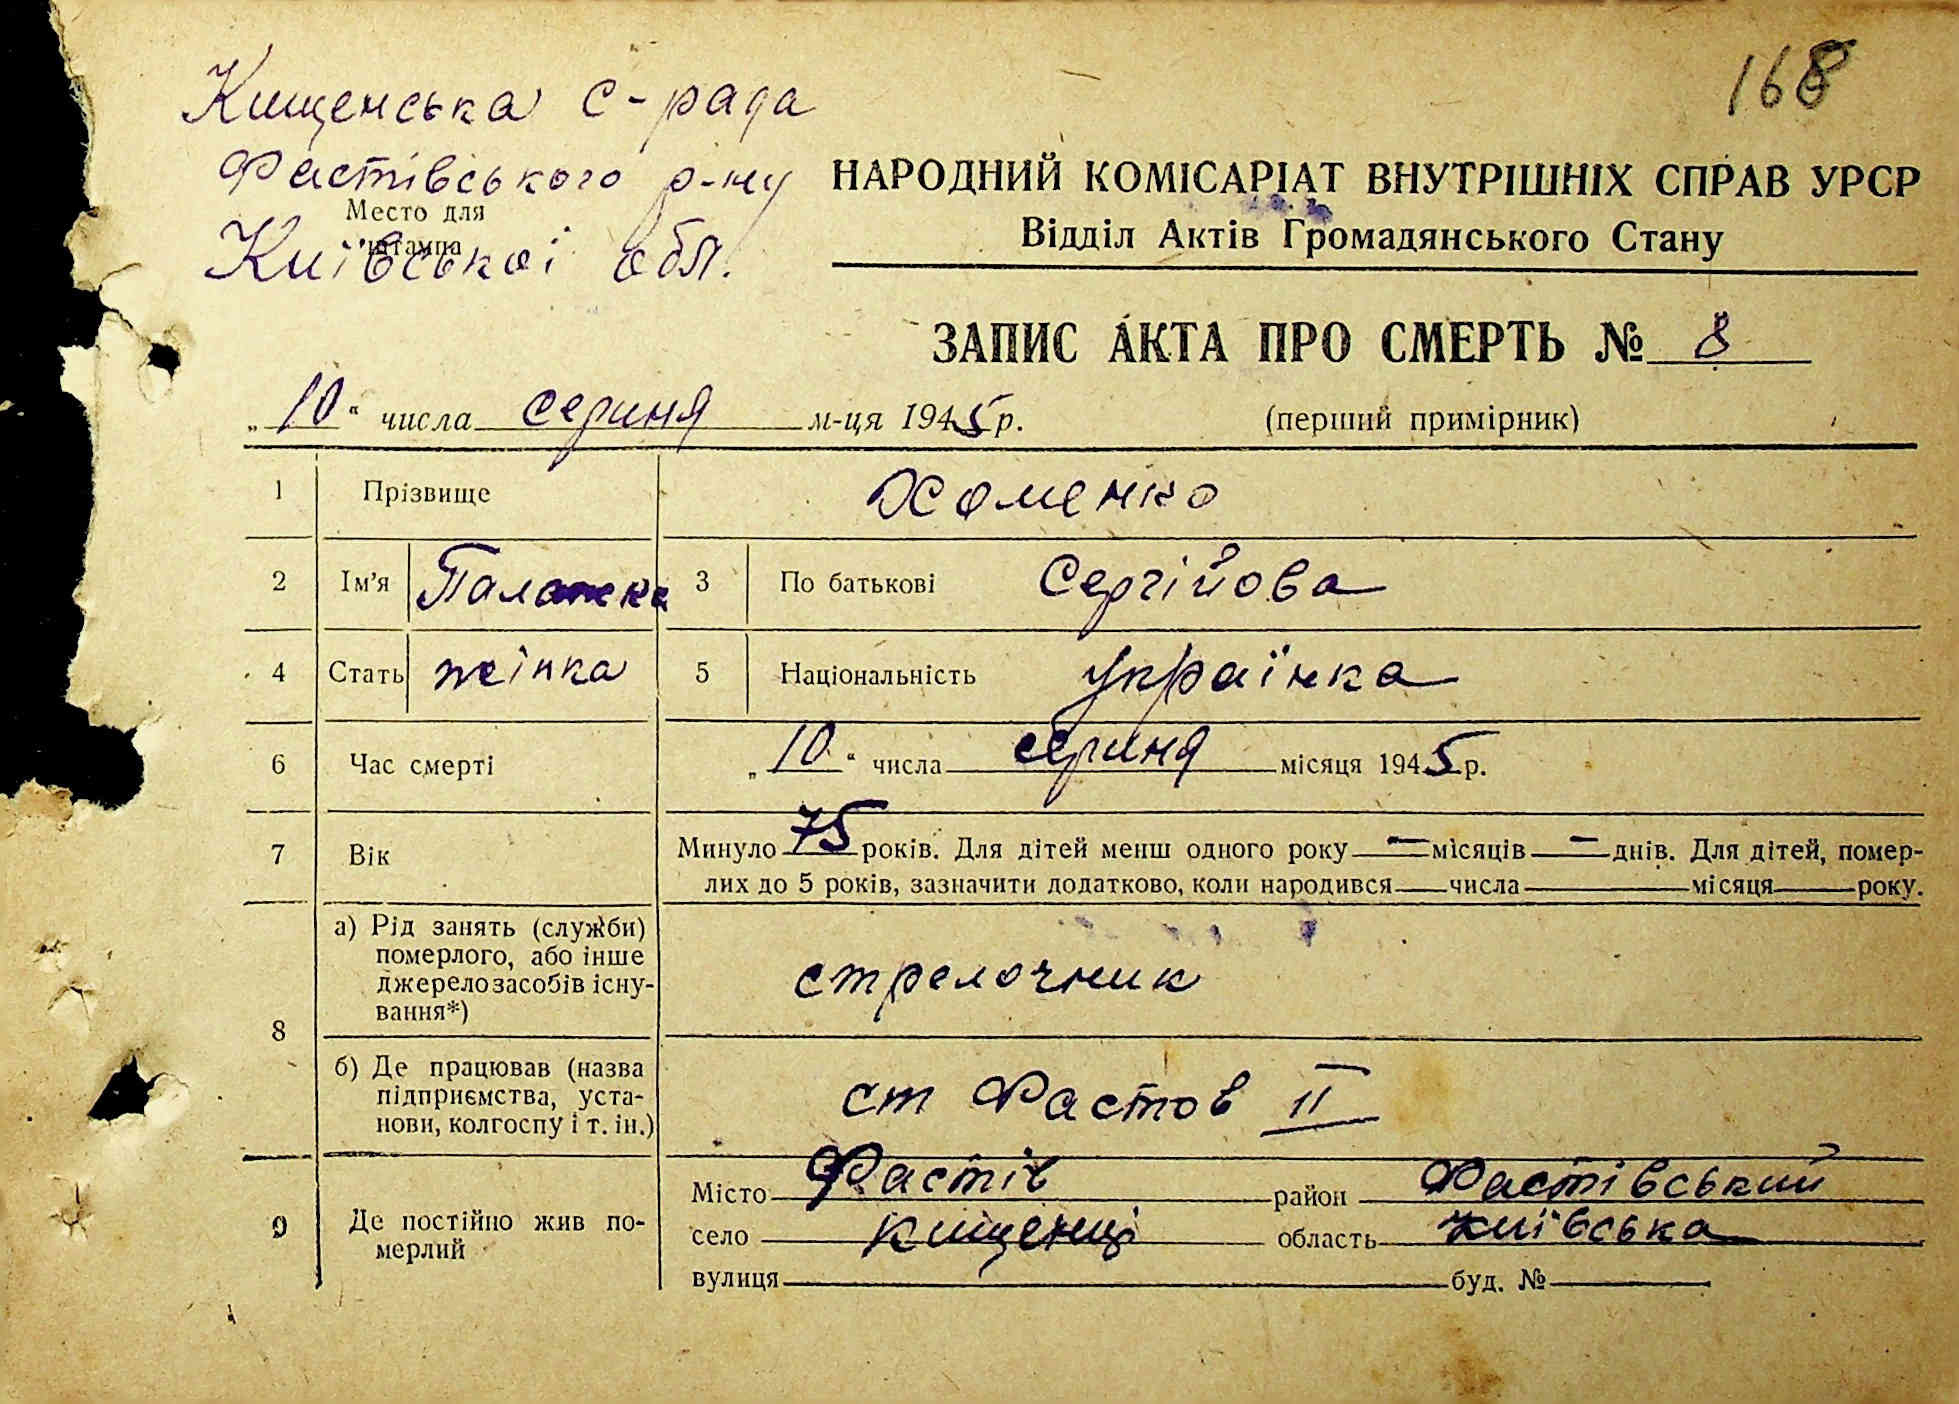 168
Кищенська с-рада
Фастівського р-ну
Место для
штампа
Київської обл.
НАРОДНИЙ КОМІСАРІАТ ВНУТРІШНІХ СПРАВ УРСР
Відділ Актів Громадянського Стану
ЗАПИС АКТА ПРО СМЕРТЬ № 8
„10“ числа серпня м-ця 1945 р.
(перший примірник)
1 Прізвище Хоменко
2 Ім'я Палажка 3 По батькові Сергійова
4 Стать жінка 5 Національність українка
6 Час смерті „10“ числа серпня місяця 1945 р.
7 Вік Минуло 75 років. Для дітей менш одного року — місяців — днів. Для дітей, помер-
лих до 5 років, зазначити додатково, коли народився числа місяця року.
8 а) Рід занять (служби)
померлого, або інше
джерело засобів існу-
вання*)
стрелочник
б) Де працював (назва
підприємства, уста-
нови, колгоспу і т. ін.)
ст Фастов II
9 Де постійно жив по-
мерлий
Місто Фастів район Фастівський
село Кищенці область Київська
вулиця буд. №